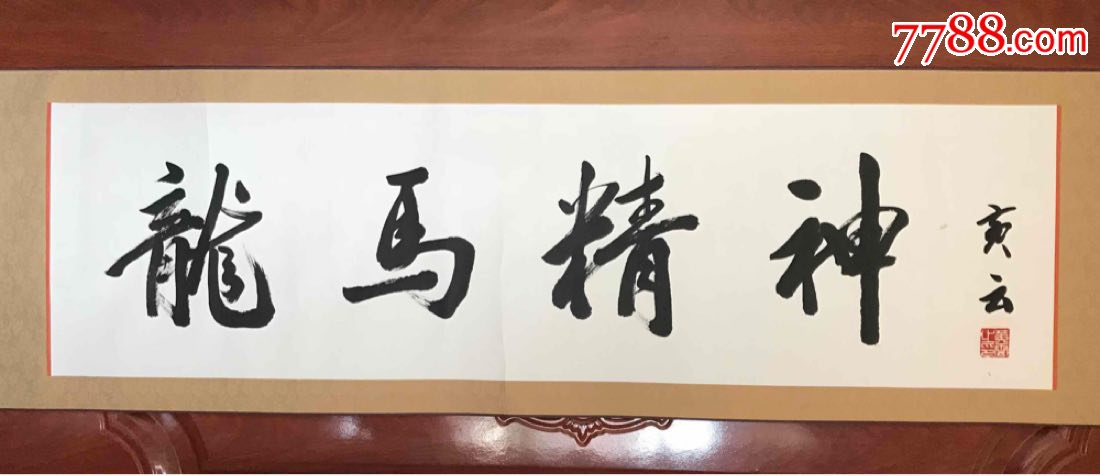 7788.com
龍马精神
寅云